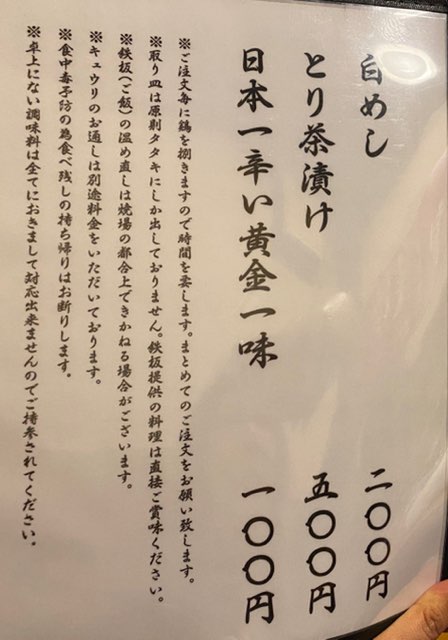 白めし 二〇〇円
とり茶漬け 五〇〇円
日本一辛い黄金一味 一〇〇円
※ご注文毎に鶏を捌きますので時間を要します。まとめてのご注文をお願い致します。
※取り皿は原則タタキにしか出しておりません。鉄板提供の料理は直接ご賞味ください。
※鉄板(ご飯)の温め直しは焼場の都合上できかねる場合がございます。
※キュウリのお通しは別途料金をいただいております。
※食中毒予防の為食べ残しの持ち帰りはお断りします。
※卓上にない調味料は全てにおきまして対応出来ませんのでご持参されてください。